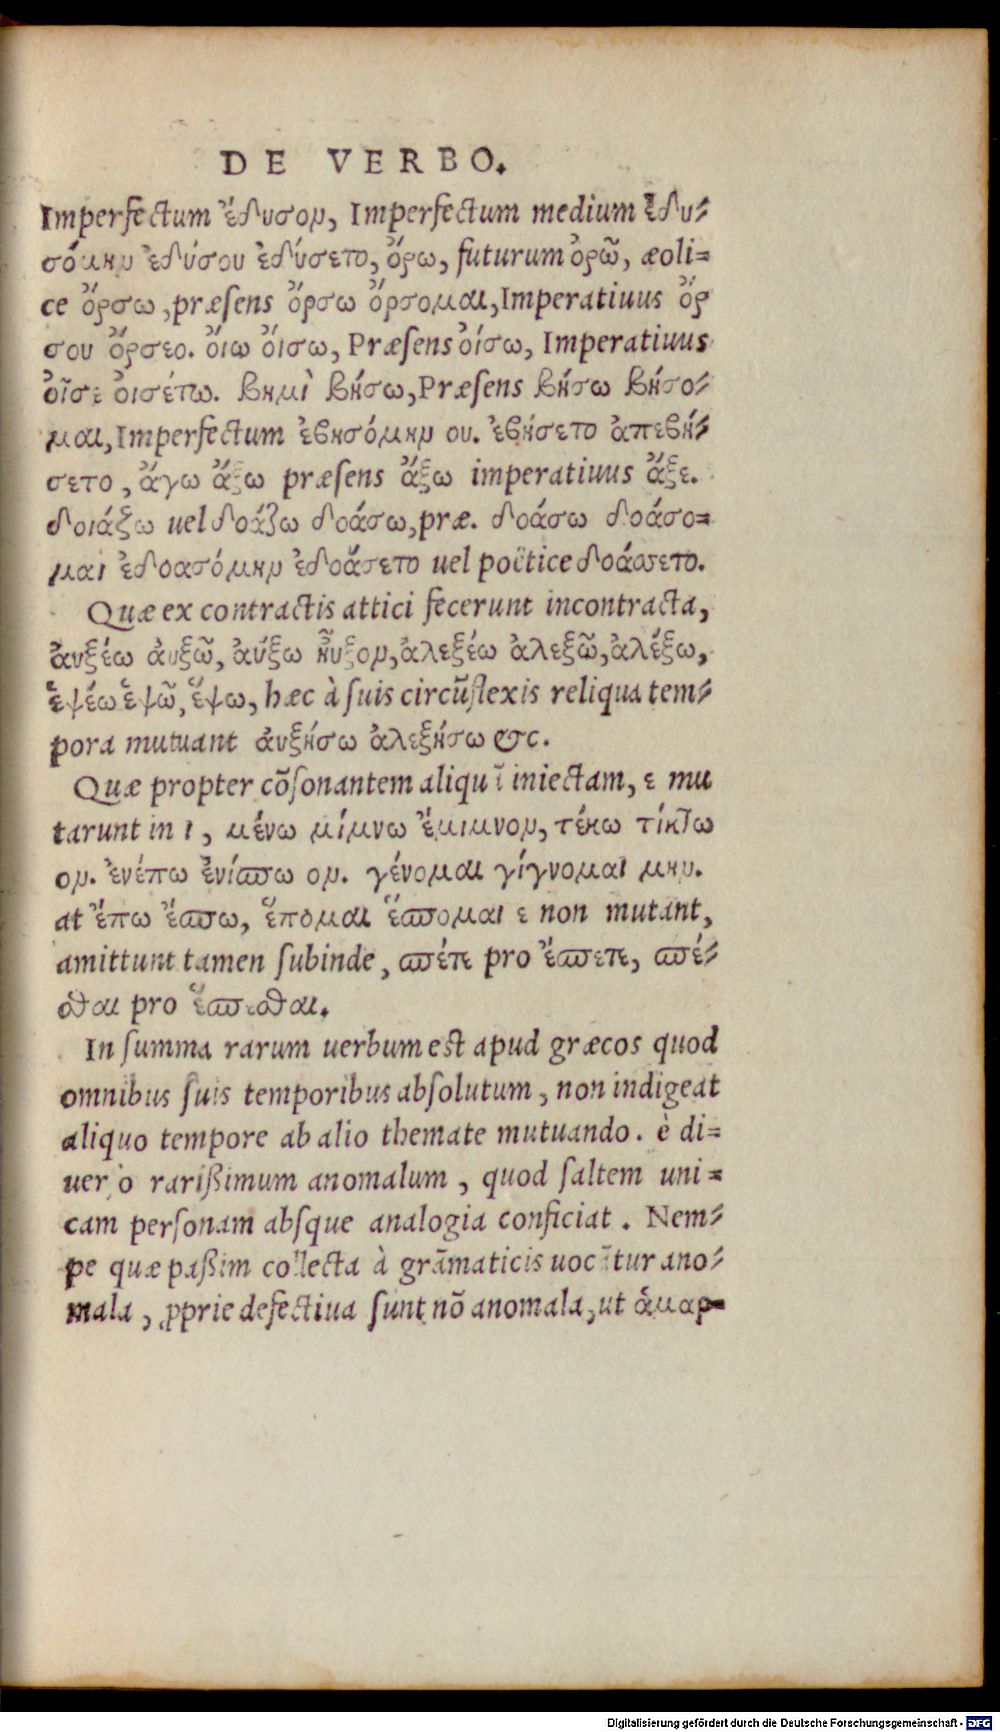 DE VERBO.
Imperfectum ἔδυσον, Imperfectum medium ἐδυ-
σόμην ἐδύσου ἐδύσετο, ὄρω, futurum ὀρῶ, æoli=
ce ὄρσω, præſens ὄρσω ὄρσομαι, Imperatiuus ὄρ
σου ὄρσεο. ὄιω ὄισω, Præſens ὀίσω, Imperatiuus
ὀῖσε ὀισέτω. βημὶ βήσω, Præſens βήσω βήσο-
μαι, Imperfectum ἐβησόμην ου. ἐβήσετο ἀπεβή-
σετο, ἄγω ἄξω præſens ἄξω imperatiuus ἄξε.
δοιάζω uel δοάζω δοάσω, præ. δοάσω δοάσο=
μαι ἐδοασόμην ἐδοάσετο uel poëtice δοάσσετο.
Quæ ex contractis attici fecerunt incontracta,
ἀυξέω ἀυξῶ, ἀύξω ηὖξον, ἀλεξέω ἀλεξῶ, ἀλέξω,
ἑψέω ἑψῶ, ἕψω, hæc à ſuis circũflexis reliqua tem-
pora mutuant ἀυξήσω ἀλεξήσω &c.
Quæ propter cõſonantem aliquã iniectam, ε mu
tarunt in ι, μένω μίμνω ἔμιμνον, τέκω τίκτω
ον. ἐνέπω ἐνίσπω ον. γένομαι γίγνομαι μην.
at ἔπω ἔσπω, ἕπομαι ἕσπομαι ε non mutant,
amittunt tamen ſubinde, σπέτε pro ἔσπετε, σπέ-
σθαι pro ἕσπεσθαι.
In ſumma rarum uerbum eſt apud græcos quod
omnibus ſuis temporibus abſolutum, non indigeat
aliquo tempore ab alio themate mutuando. è di=
uerſo rarißimum anomalum, quod ſaltem uni=
cam perſonam abſque analogia conficiat. Nem-
pe quæ paßim collecta à grãmaticis uocãtur ano-
mala, ꝓprie defectiua ſunt nõ anomala, ut ἁμαρ=
Digitalisierung gefördert durch die Deutsche Forschungsgemeinschaft - DFG